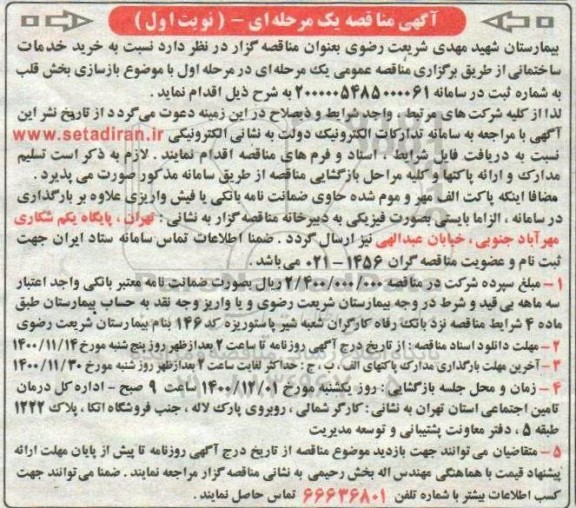 آگهی مناقصه یک مرحله ای - ( نوبت اول )
بیمارستان شهید مهدی شریعت رضوی بعنوان مناقصه گزار در نظر دارد نسبت به خرید خدمات
ساختمانی از طریق برگزاری مناقصه عمومی یک مرحله ای در مرحله اول با موضوع بازسازی بخش قلب
به شماره ثبت در سامانه ۲۰۰۰۰۰۵۴۸۵۰۰۰۰۶۱ به شرح ذیل اقدام نماید .
لذا از کلیه شرکت های مرتبط ، واجد شرایط و ذیصلاح در این زمینه دعوت می گردد از تاریخ نشر این
آگهی با مراجعه به سامانه تدارکات الکترونیک دولت به نشانی الکترونیکی www.setadiran.ir
نسبت به دریافت فایل شرایط ، اسناد و فرم های مناقصه اقدام نمایند . لازم به ذکر است تسلیم
مدارک و ارائه پاکتها و کلیه مراحل بازگشایی مناقصه از طریق سامانه مذکور صورت می پذیرد .
مضافا اینکه پاکت الف مهر و موم شده حاوی ضمانت نامه بانکی یا فیش واریزی علاوه بر بارگذاری
در سامانه ، الزاما بایستی بصورت فیزیکی به دبیرخانه مناقصه گزار به نشانی : تهران ، پایگاه یکم شکاری
مهرآباد جنوبی ، خیابان عبدالهی نیز ارسال گردد . ضمنا اطلاعات تماس سامانه ستاد ایران جهت
ثبت نام و عضویت مناقصه گران ۱۴۵۶-۰۲۱ می باشد .
۱- مبلغ سپرده شرکت در مناقصه ۲/۴۰۰/۰۰۰/۰۰۰ ریال بصورت ضمانت نامه معتبر بانکی واجد اعتبار
سه ماهه بی قید و شرط در وجه بیمارستان شریعت رضوی و یا واریز وجه نقد به حساب بیمارستان طبق
ماده ۴ شرایط مناقصه نزد بانک رفاه کارگران شعبه شیر پاستوریزه کد ۱۴۶ بنام بیمارستان شریعت رضوی
۲- مهلت دانلود اسناد مناقصه : از تاریخ درج آگهی روزنامه تا ساعت ۲ بعدازظهر روز پنج شنبه مورخ ۱۴۰۰/۱۱/۱۴
۳- آخرین مهلت بارگذاری مدارک پاکتهای الف ، ب ، ج : حداکثر لغایت ساعت ۲ بعدازظهر روز شنبه مورخ ۱۴۰۰/۱۱/۳۰
۴- زمان و محل جلسه بازگشایی : روز یکشنبه مورخ ۱۴۰۰/۱۲/۰۱ ساعت ۹ صبح - اداره کل درمان
تامین اجتماعی استان تهران به نشانی : کارگر شمالی ، روبروی پارک لاله ، جنب فروشگاه اتکا ، پلاک ۱۲۲۲
طبقه ۵ ، دفتر معاونت پشتیبانی و توسعه مدیریت
۵- متقاضیان می توانند جهت بازدید موضوع مناقصه از تاریخ درج آگهی روزنامه تا پیش از پایان مهلت ارائه
پیشنهاد قیمت با هماهنگی مهندس اله بخش رحیمی به نشانی مناقصه گزار مراجعه نمایند . ضمنا می توانند جهت
کسب اطلاعات بیشتر با شماره تلفن ۶۶۶۳۶۸۰۱ تماس حاصل نمایند .